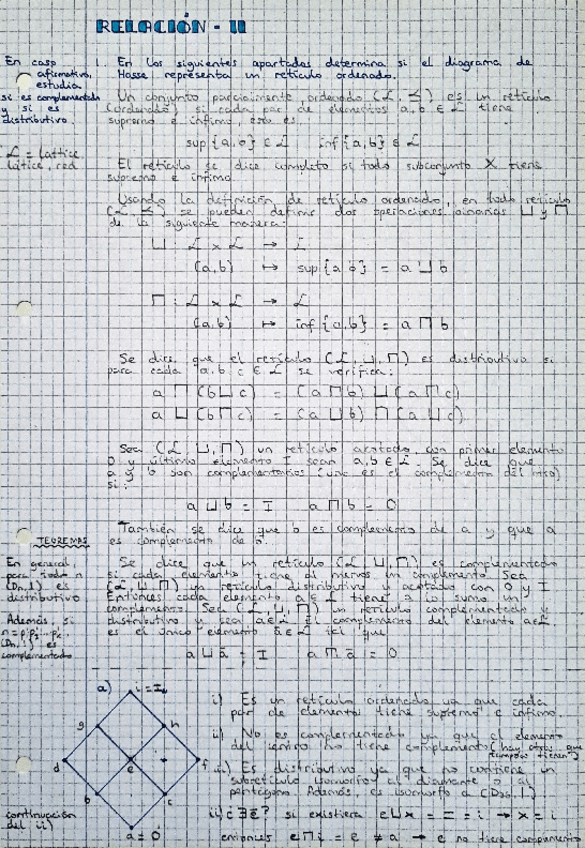 RELACIÓN - II
En caso afirmativo, estudia si es complementado y si es distributivo.
1. En los siguientes apartados determina si el diagrama de
Hasse representa un retículo ordenado.
Un conjunto parcialmente ordenado (L, ≤) es un retículo
(ordenado) si cada par de elementos a, b ∈ L tiene
supremo e ínfimo, esto es
sup {a, b} ∈ L inf {a, b} ∈ L
L = lattice
látice, red
El retículo se dice completo si todo subconjunto X tiene
supremo e ínfimo.
Usando la definición de retículo ordenado, en todo retículo
(L, ≤) se pueden definir dos operaciones binarias ⊔ y ⊓
de la siguiente manera:
⊔ : L x L → L
(a,b) ↦ sup {a b} = a ⊔ b
⊓ : L x L → L
(a,b) ↦ inf {a,b} = a ⊓ b
Se dice que el retículo (L, ⊔, ⊓) es distributivo si
para cada a, b, c ∈ L se verifica:
a ⊓ (b ⊔ c) = (a ⊓ b) ⊔ (a ⊓ c)
a ⊔ (b ⊓ c) = (a ⊔ b) ⊓ (a ⊔ c)
Sea (L, ⊔, ⊓) un retículo acotado, con primer elemento
0 y último elemento I sean a, b ∈ L. Se dice que
a y b son complementarios (uno es el complemento del otro)
si:
a ⊔ b = I a ⊓ b = 0
También se dice que b es complemento de a y que a
es complemento de b.
TEOREMAS
En general,
para todo n
(Dn, |) es
distributivo
Además, si
(Dn, |) es
complementado
Se dice que un retículo (L, ⊔, ⊓) es complementado
si cada elemento tiene al menos un complemento. Sea
(L, ⊔, ⊓) un retículo distributivo y acotado con 0 y I
Entonces cada elemento a ∈ L tiene a lo sumo un
complemento. Sea (L, ⊔, ⊓) un retículo complementado y
distributivo y sea a ∈ L el complemento del elemento a ∈ L
es el único elemento ā ∈ L tal que
a ⊔ ā = I a ⊓ ā = 0
a)
g
h
d
e
f
b
c
a = 0
i) Es un retículo ordenado ya que cada
par de elemento tiene supremo e ínfimo.
ii) No es complementado ya que el elemento
del centro no tiene complemento (hay otros que
tampoco tienen)
iii) Es distributivo ya que no contiene un
subretículo isomorfo al diamante o al
pentágono. Además, es isomorfo a
continuación
del ii)
si existiera
entonces e ⊓ i = e ≠ a → e no tiene complemento